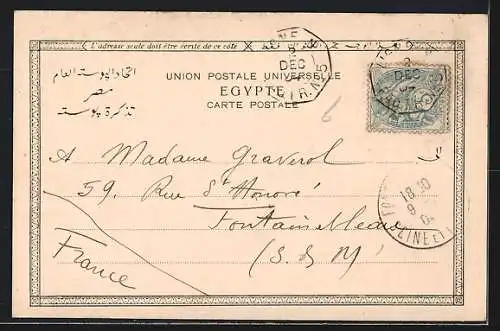 L'adresse seule doit être écrite de ce côté
اتحاد البوستة العام
مصر
تذكرة بوستة
UNION POSTALE UNIVERSELLE
EGYPTE
CARTE POSTALE
LIGNE N
2
DEC
LIGNE N
2
DEC
6
A Madame Graverol
59, Rue St Honoré
Fontainebleau
(S. & M)
France
18 30
9